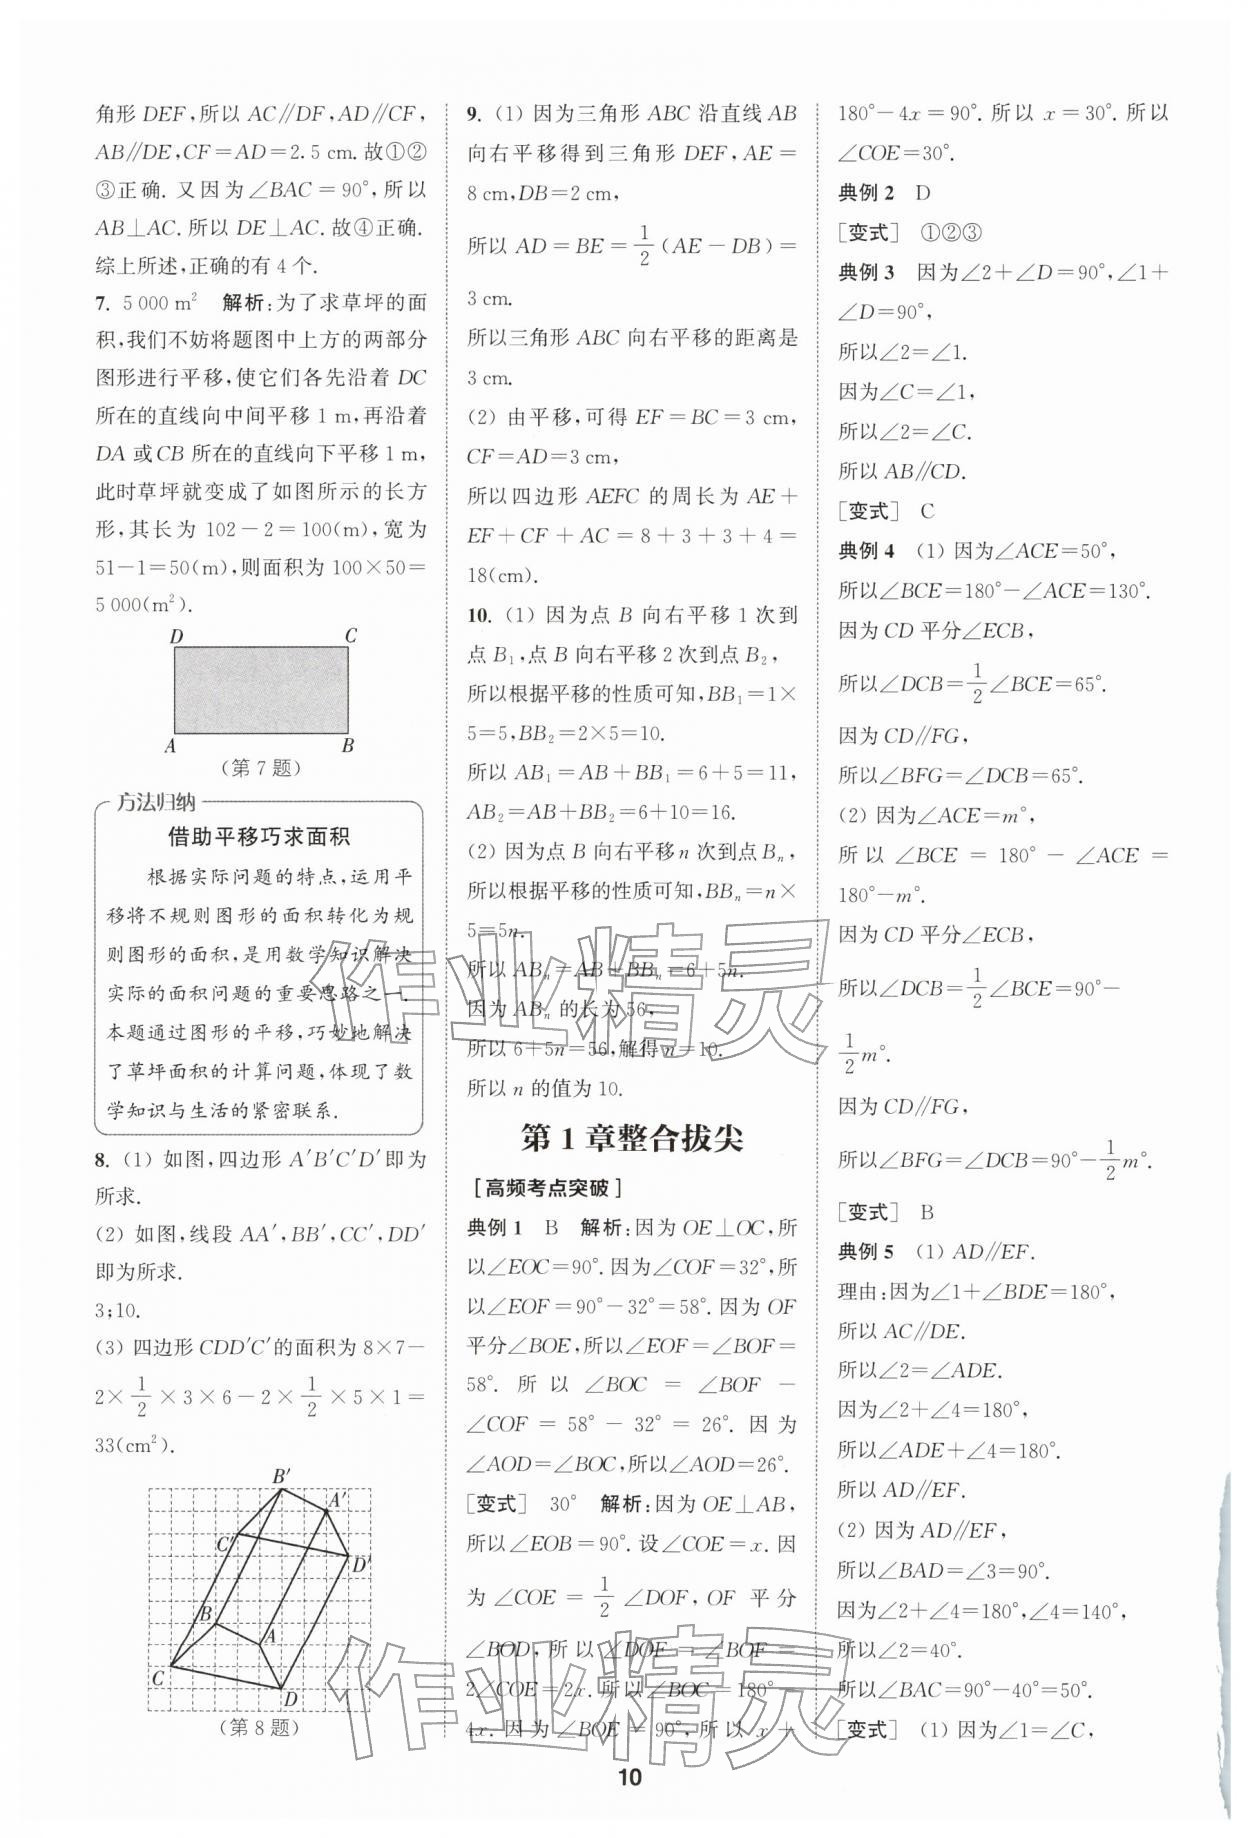 角形 DEF,所以 AC∥DF,AD∥CF,
AB∥DE,CF=AD=2.5 cm.故①②
③正确.又因为∠BAC=90°,所以
AB⊥AC.所以 DE⊥AC.故④正确.
综上所述,正确的有 4 个.
7. 5 000 m² 解析:为了求草坪的面
积,我们不妨将题图中上方的两部分
图形进行平移,使它们各先沿着 DC
所在的直线向中间平移 1 m,再沿着
DA 或 CB 所在的直线向下平移 1 m,
此时草坪就变成了如图所示的长方
形,其长为 102-2=100(m),宽为
51-1=50(m),则面积为 100×50=
5 000(m²).
D C
A B
(第 7 题)
方法归纳
借助平移巧求面积
根据实际问题的特点,运用平
移将不规则图形的面积转化为规
则图形的面积,是用数学知识解决
实际的面积问题的重要思路之一.
本题通过图形的平移,巧妙地解决
了草坪面积的计算问题,体现了数
学知识与生活的紧密联系.
8. (1) 如图,四边形 A′B′C′D′即为
所求.
(2) 如图,线段 AA′,BB′,CC′,DD′
即为所求.
3;10.
(3) 四边形 CDD′C′的面积为 8×7-
2×1/2×3×6-2×1/2×5×1=
33(cm²).
B′
A′
C′
D′
B
A
C
D
(第 8 题)
9. (1) 因为三角形 ABC 沿直线 AB
向右平移得到三角形 DEF,AE=
8 cm,DB=2 cm,
所以 AD=BE=1/2(AE-DB)=
3 cm.
所以三角形 ABC 向右平移的距离是
3 cm.
(2) 由平移,可得 EF=BC=3 cm,
CF=AD=3 cm,
所以四边形 AEFC 的周长为 AE+
EF+CF+AC=8+3+3+4=
18(cm).
10. (1) 因为点 B 向右平移 1 次到
点 B₁,点 B 向右平移 2 次到点 B₂,
所以根据平移的性质可知,BB₁=1×
5=5,BB₂=2×5=10.
所以 AB₁=AB+BB₁=6+5=11,
AB₂=AB+BB₂=6+10=16.
(2) 因为点 B 向右平移 n 次到点 Bₙ,
所以根据平移的性质可知,BBₙ=n×
5=5n.
所以 ABₙ=AB+BBₙ=6+5n.
因为 ABₙ 的长为 56,
所以 6+5n=56,解得 n=10.
所以 n 的值为 10.
第 1 章整合拔尖
[高频考点突破]
典例 1 B 解析:因为 OE⊥OC,所
以∠EOC=90°.因为∠COF=32°,所
以∠EOF=90°-32°=58°.因为 OF
平分∠BOE,所以∠EOF=∠BOF=
58°.所以∠BOC=∠BOF-
∠COF=58°-32°=26°.因为
∠AOD=∠BOC,所以∠AOD=26°.
[变式] 30° 解析:因为 OE⊥AB,
所以∠EOB=90°.设∠COE=x.因
为∠COE=1/2∠DOF,OF 平分
∠BOD,所以∠DOF=∠BOF=
2∠COE=2x.所以∠BOC=180°-
4x.因为∠BOE=90°,所以 x+
180°-4x=90°.所以 x=30°.所以
∠COE=30°.
典例 2 D
[变式] ①②③
典例 3 因为∠2+∠D=90°,∠1+
∠D=90°,
所以∠2=∠1.
因为∠C=∠1,
所以∠2=∠C.
所以 AB∥CD.
[变式] C
典例 4 (1) 因为∠ACE=50°,
所以∠BCE=180°-∠ACE=130°.
因为 CD 平分∠ECB,
所以∠DCB=1/2∠BCE=65°.
因为 CD∥FG,
所以∠BFG=∠DCB=65°.
(2) 因为∠ACE=m°,
所以∠BCE=180°-∠ACE=
180°-m°.
因为 CD 平分∠ECB,
所以∠DCB=1/2∠BCE=90°-
1/2m°.
因为 CD∥FG,
所以∠BFG=∠DCB=90°-1/2m°.
[变式] B
典例 5 (1) AD∥EF.
理由:因为∠1+∠BDE=180°,
所以 AC∥DE.
所以∠2=∠ADE.
因为∠2+∠4=180°,
所以∠ADE+∠4=180°.
所以 AD∥EF.
(2) 因为 AD∥EF,
所以∠BAD=∠3=90°.
因为∠2+∠4=180°,∠4=140°,
所以∠2=40°.
所以∠BAC=90°-40°=50°.
[变式] (1) 因为∠1=∠C,
10
作业精灵
作业精灵